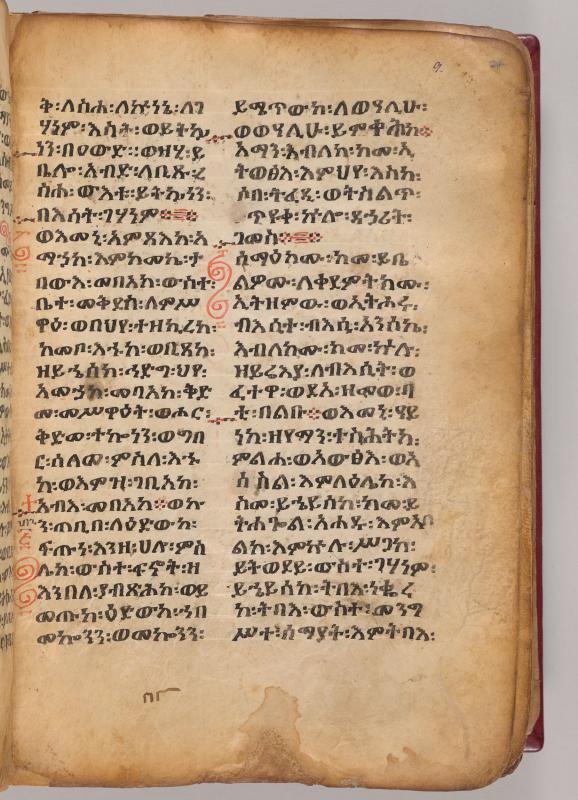 ቅ፡ለስሐ፡ለኵነኔ፡ለገ
ሃነም፡እስት፡ወይትኴ
ነን፡በዐውድ፡፡ወዘሂ፡ይ
ቤሎ፡አብድ፡ለቢጹ፡ረ
ስሐ፡ውእቱ፡ይትኴነን፡
በእሳት፡ገሃነም፨
ወእመኒ፡አምጻእከ፡አ
ማኃከ፡እምከመኬ፡ት
በውእ፡መበአከ፡ውስተ፡
ቤተ፡መቅደስ፡ለምሥ
ዋዕ፡ወበህየ፡ተዘኪረከ፡
ከመቦ፡እኁከ፡ወቢጽከ፡
ዘይሔሰከ፡ኅድግ፡ህየ፡
አመኃከ፡መባአከ፡ቅድ
መ፡መሥዋዕት፡ወሖር፡
ቅድመ፡ተኰነን፡ወግበ
ር፡ሰለመ፡ምስለ፡እኁ
ከ፡ወእምዝ፡ገቢአከ፡
አብእ፡መበአከ፨ወኩ
ን፡ጠቢበ፡ለዕድውከ፡
ፍጡነ፡እንዘ፡ሀሎ፡ምስ
ሌከ፡ውስተ፡ፍኖት፡ዘ
እንበለ፡ያብጽሐከ፡ወይ
መጡከ፡ዕድውከ፡ኀበ
መኰንን፡ወመኰንን፡
ይሜጥውከ፡ለወዓሊሁ፡
ወወዓሊሁ፡ይሞቅሕከ፨
አማን፡እብለከ፡ከመ፡ኢ
ትወፅእ፡እምህየ፡እስከ፡
ሶበ፡ትፈዲ፡ወትስልጥ፡
ጥዩቀ፡ኵሎ፡ዴኃሪት፡
ጋመስ፨
ሰማዕከሙ፡ከመ፡ይቤ
ልዎሙ፡ለቀደምትከሙ፡
ኢትዘምው፡ወኢትሖሩ፡
ብእሲተ፡ብእሲ፡አንሰኬ፡
እብለከሙ፡ከመ፡ኵሉ፡
ዘይሬእያ፡ለብእሲት፡ወ
ፈተዋ፡ወደአ፡ዘመወ፡ባ
ቲ፡በልቡ፨ወእመኒ፡ዓይ
ነከ፡ዘየማን፡ተስሕትከ፡
ምልሐ፡ወአውፅእ፡ወአ
ሰስል፡እምላዕሌከ፡እ
ስመ፡ይኄይሰከ፡ከመ፡ይ
ትሐጐል፡አሐዱ፡እምአባ
ልከ፡እምኵሉ፡ሥጋከ፡
ይትወደይ፡ውስተ፡ገሃነም፡